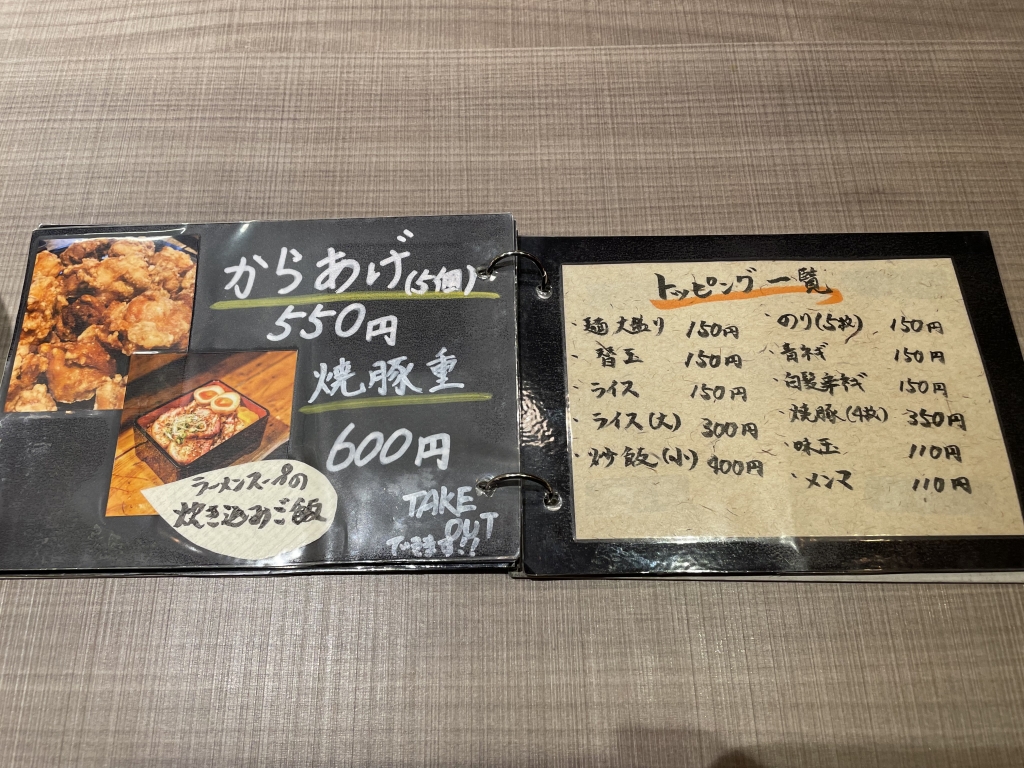 からあげ(5個)
550円
焼豚重
600円
ラーメンスープの
炊き込みご飯
TAKE
OUT
できます!!
トッピング一覧
・麺大盛り 150円
・替玉 150円
・ライス 150円
・ライス(大) 300円
・炒飯(小) 400円
・のり(5枚) 150円
・青ネギ 150円
・白髪辛ネギ 150円
・焼豚(4枚) 350円
・味玉 110円
・メンマ 110円